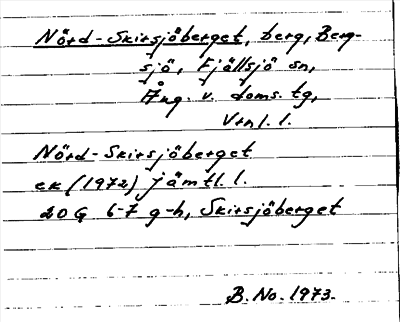 Nörd-Skirsjöberget, berg, Berg-
sjö, Fjällsjö sn,
Ång. v. doms. tg,
Vrnl. l.
Nörd-Skirsjöberget
ek (1972) Jämtl. l.
20G 6-7 g-h, Skirsjöberget
B. No. 1973.